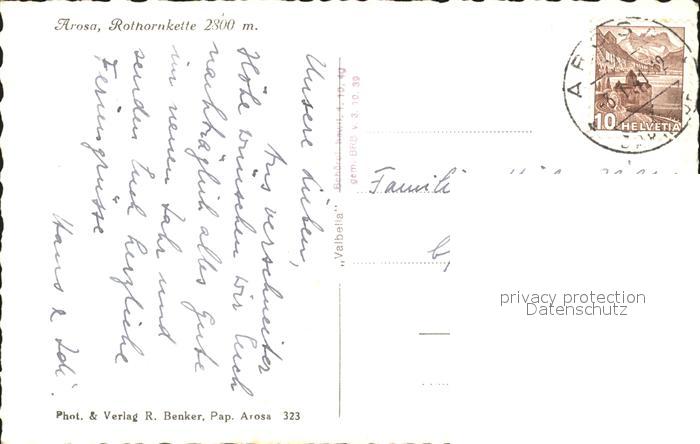 Arosa, Rothornkette 2800 m.
Unsere Lieben,
Aus verschneiter
Höhe wünschen wir Euch
nachträglich alles Gute
im neuen Jahr und
senden Euch herzliche
Feriengrüsse
Hans & Idi.
Phot. & Verlag R. Benker, Pap. Arosa 323
„Valbella“
gem. BRB v. 3. 10. 39
Famili
AROS
10 HELVETIA
privacy protection
Datenschutz